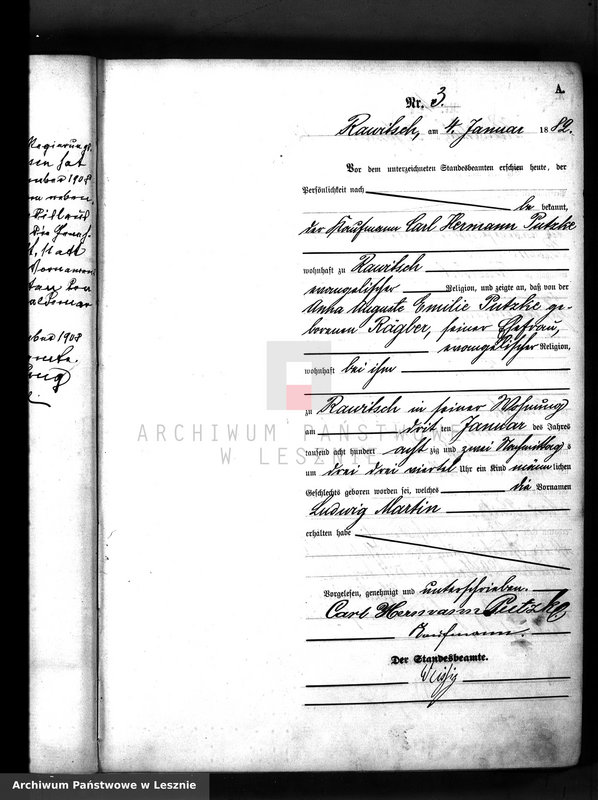 Regierungs
hat
1908
neben,
die
statt
Vornamen
1908
A.
Nr. 3.
Rawitsch, am 4. Januar 1882.
Vor dem unterzeichneten Standesbeamten erschien heute, der
Persönlichkeit nach
be kannt,
der Kaufmann Carl Hermann Putzke
wohnhaft zu Rawitsch
evangelischer Religion, und zeigte an, daß von der
Anna Auguste Emilie Putzke ge-
borenen Rägber, seiner Ehefrau,
evangelischer Religion,
wohnhaft bei ihm
ARCHIWUM PAŃSTWOWE
W LESZNIE
zu Rawitsch in seiner Wohnung
am drit ten Januar des Jahres
tausend acht hundert acht zig und zwei Nachmittags
um drei drei viertel Uhr ein Kind männ lichen
Geschlechts geboren worden sei, welches die Vornamen
Ludwig Martin
erhalten habe
Vorgelesen, genehmigt und unterschrieben.
Carl Hermann Putzke
Kaufmann.
Der Standesbeamte.
Archiwum Państwowe w Lesznie
Archiwum Państwowe w Lesznie